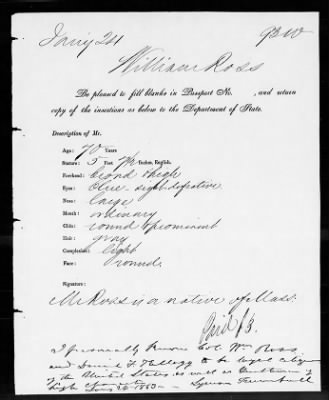 Jany 24
William Ross
Be pleased to fill blanks in Passport No. , and return
copy of the insertions as below to the Department of State.
Description of Mr.
Age: 70 Years
Stature: 5 Feet 7½ Inches, English.
Forehead: broad & high
Eyes: blue - sight defective
Nose: large
Mouth: ordinary
Chin: round & prominent
Hair: gray
Complexion: light
Face: round.
Signature:
Mr Ross is a native of Mass.
I personally know Col. Wm Ross
and Daniel F. Kellogg to be legal citizens
of the United States as well as Gentlemen of
high 1860 Lyman Trumbull